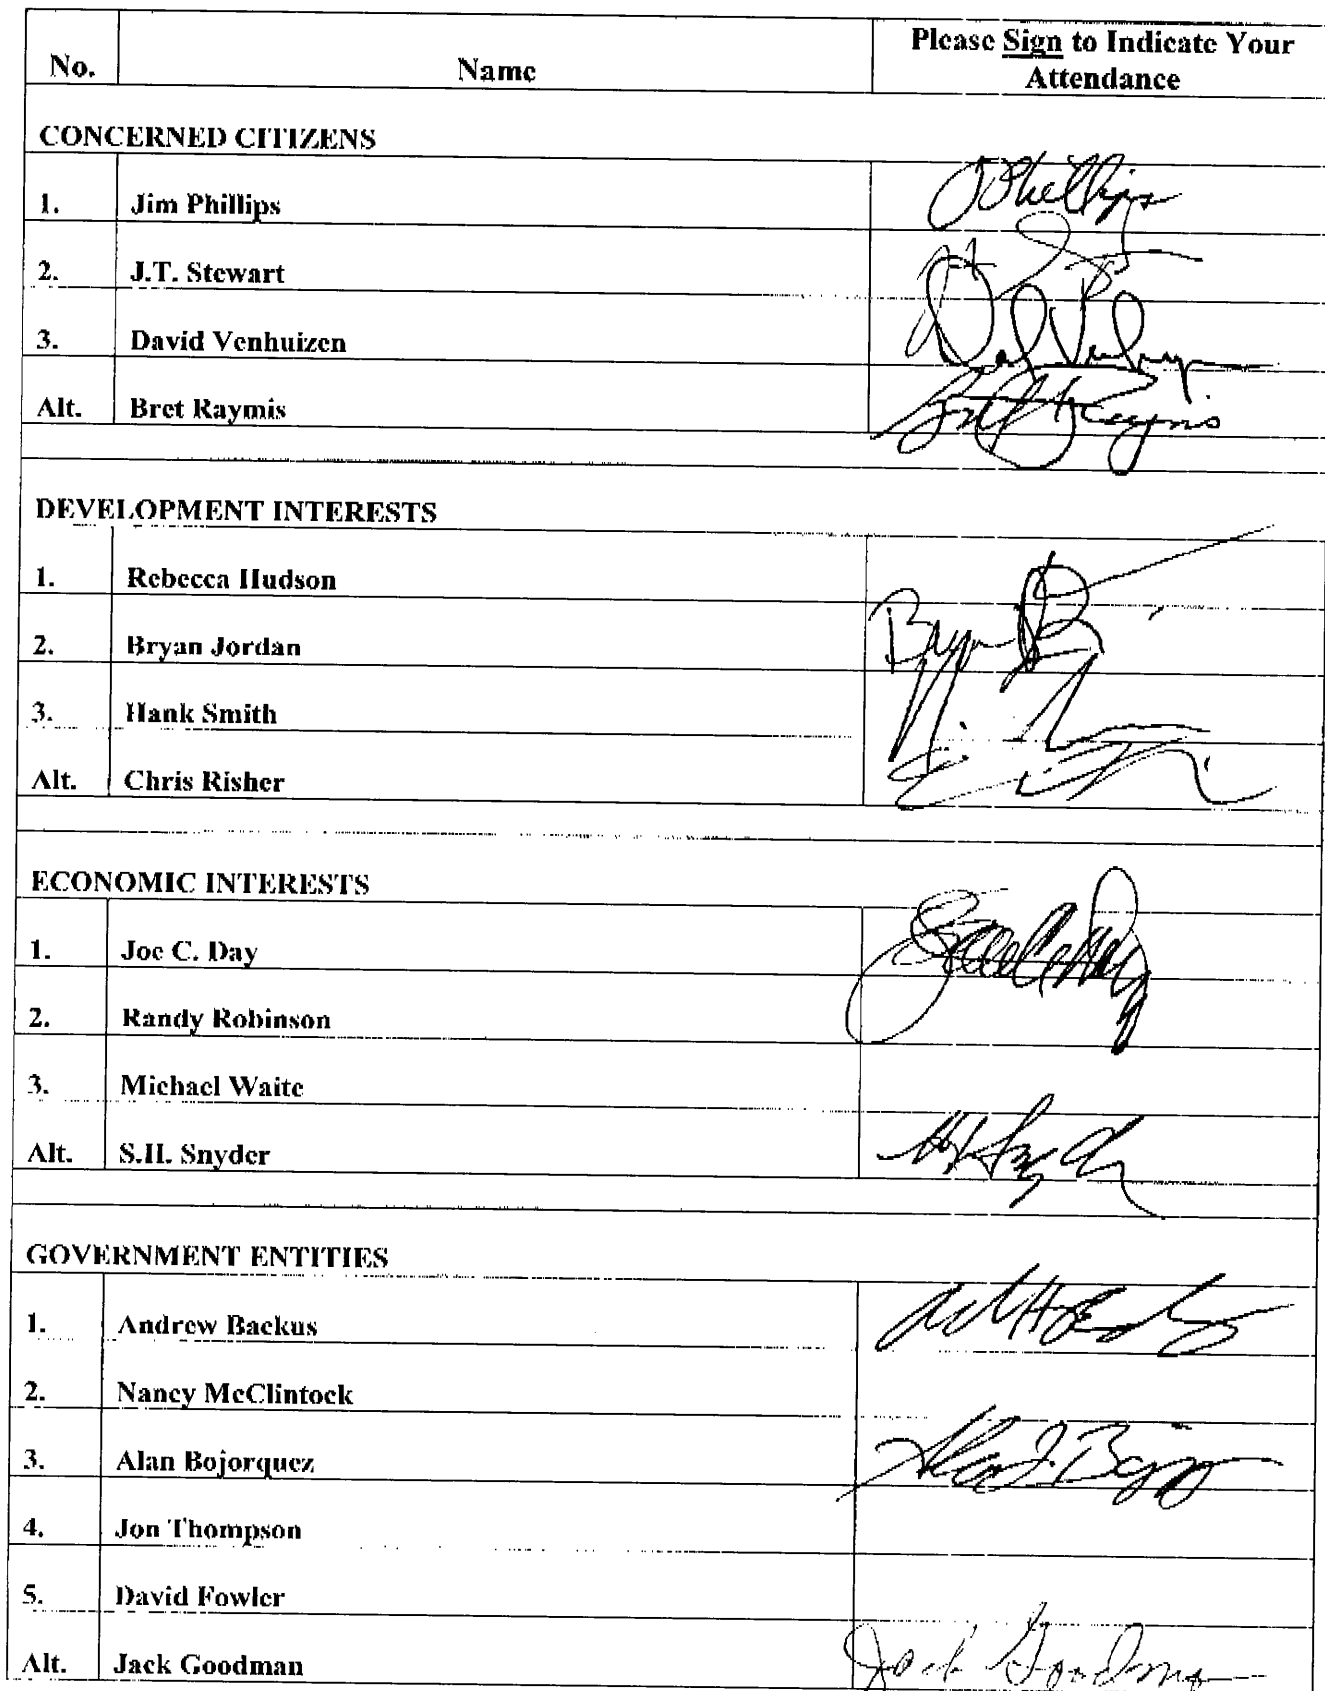 No. Name Please Sign to Indicate Your
Attendance
CONCERNED CITIZENS
1. Jim Phillips JPhillips
2. J.T. Stewart
3. David Venhuizen
Alt. Bret Raymis
DEVELOPMENT INTERESTS
1. Rebecca Hudson
2. Bryan Jordan Bryan
3. Hank Smith
Alt. Chris Risher
ECONOMIC INTERESTS
1. Joe C. Day
2. Randy Robinson
3. Michael Waite
Alt. S.H. Snyder
GOVERNMENT ENTITIES
1. Andrew Backus
2. Nancy McClintock
3. Alan Bojorquez
4. Jon Thompson
5. David Fowler
Alt. Jack Goodman Jack Goodman